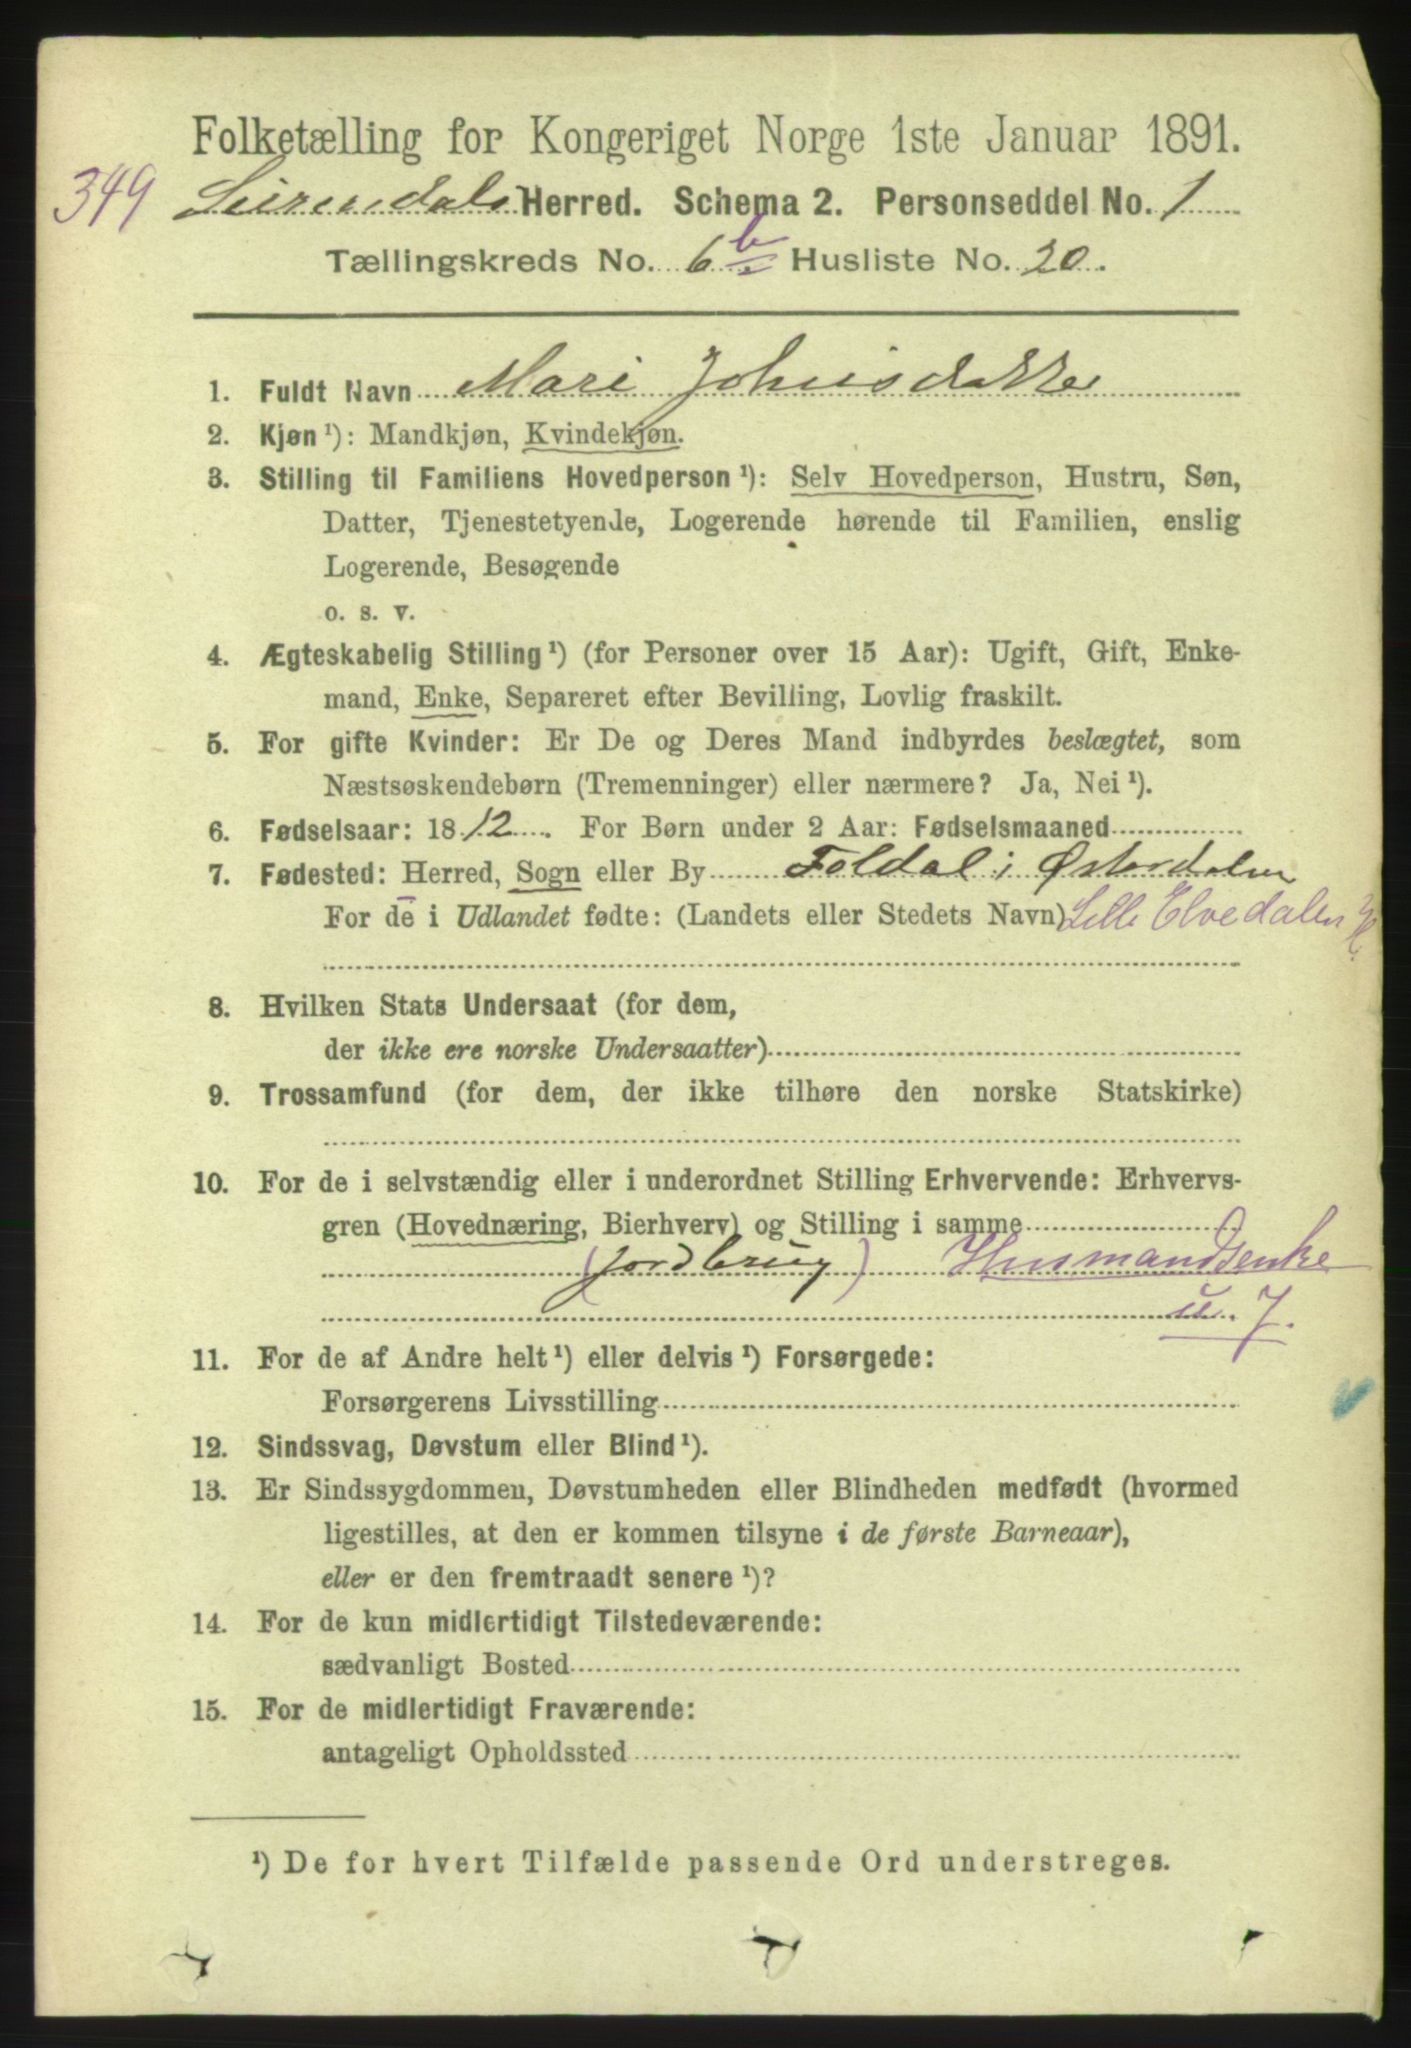 Folketælling for Kongeriget Norge 1ste Januar 1891.
349 Surendals Herred. Schema 2. Personseddel No. 1
Tællingskreds No. 6 b. Husliste No. 20.
1. Fuldt Navn Mari Johnsdatter
2. Kjøn ¹): Mandkjøn, Kvindekjøn.
3. Stilling til Familiens Hovedperson ¹): Selv Hovedperson, Hustru, Søn,
Datter, Tjenestetyende, Logerende hørende til Familien, enslig
Logerende, Besøgende
o. s. v.
4. Ægteskabelig Stilling ¹) (for Personer over 15 Aar): Ugift, Gift, Enke-
mand, Enke, Separeret efter Bevilling, Lovlig fraskilt.
5. For gifte Kvinder: Er De og Deres Mand indbyrdes beslægtet, som
Næstsøskendebørn (Tremenninger) eller nærmere? Ja, Nei ¹).
6. Fødselsaar: 1812. For Børn under 2 Aar: Fødselsmaaned
7. Fødested: Herred, Sogn eller By Foldal i Østerdalen
For de i Udlandet fødte: (Landets eller Stedets Navn) Lille Elvedalen H.
8. Hvilken Stats Undersaat (for dem,
der ikke ere norske Undersaatter)
9. Trossamfund (for dem, der ikke tilhøre den norske Statskirke)
10. For de i selvstændig eller i underordnet Stilling Erhvervende: Erhvervs-
gren (Hovednæring, Bierhverv) og Stilling i samme
(Jordbrug) Husmandsenke
u. J.
11. For de af Andre helt ¹) eller delvis ¹) Forsørgede:
Forsørgerens Livsstilling
12. Sindssvag, Døvstum eller Blind ¹).
13. Er Sindssygdommen, Døvstumheden eller Blindheden medfødt (hvormed
ligestilles, at den er kommen tilsyne i de første Barneaar),
eller er den fremtraadt senere ¹)?
14. For de kun midlertidigt Tilstedeværende:
sædvanligt Bosted
15. For de midlertidigt Fraværende:
antageligt Opholdssted
¹) De for hvert Tilfælde passende Ord understreges.